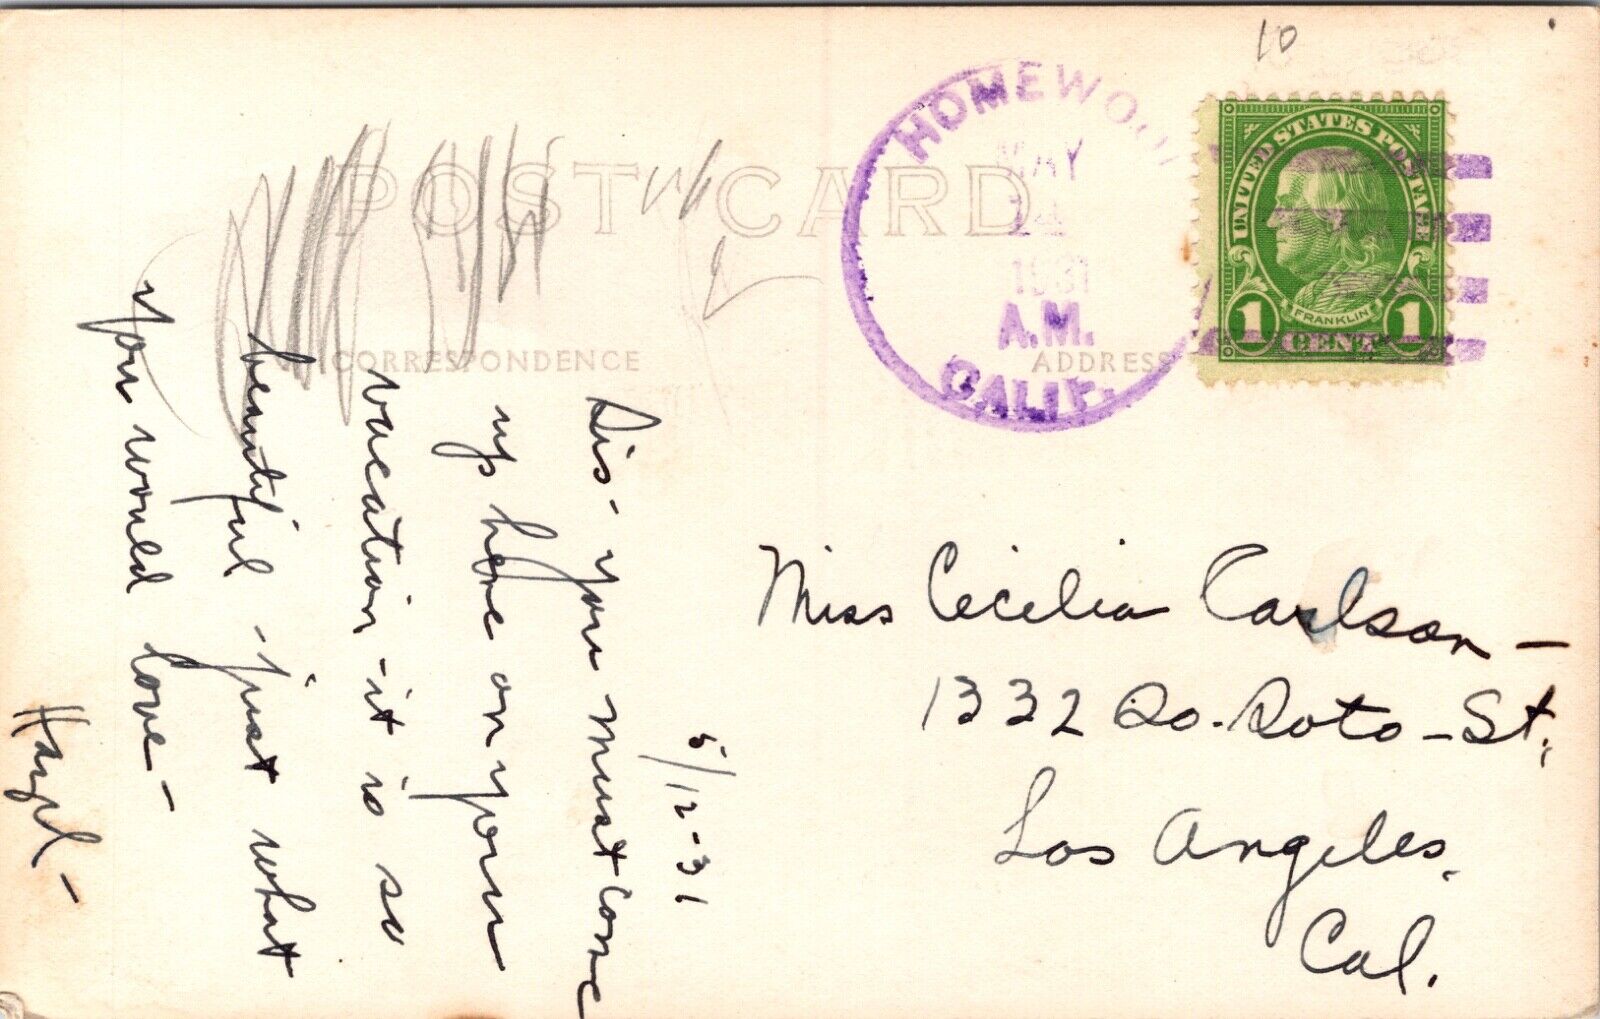 10
POST CARD
CORRESPONDENCE
ADDRESS
HOMEWOOD
MAY
14
1931
A.M.
CALIF.
UNITED STATES POSTAGE
FRANKLIN
1 CENT 1
5/12-31
Sis- you must come
up here on your
vacation - it is so
beautiful - just what
you would love -
Hazel -
Miss Cecilia Carlson -
1332 So. Soto - St.
Los Angeles,
Cal.